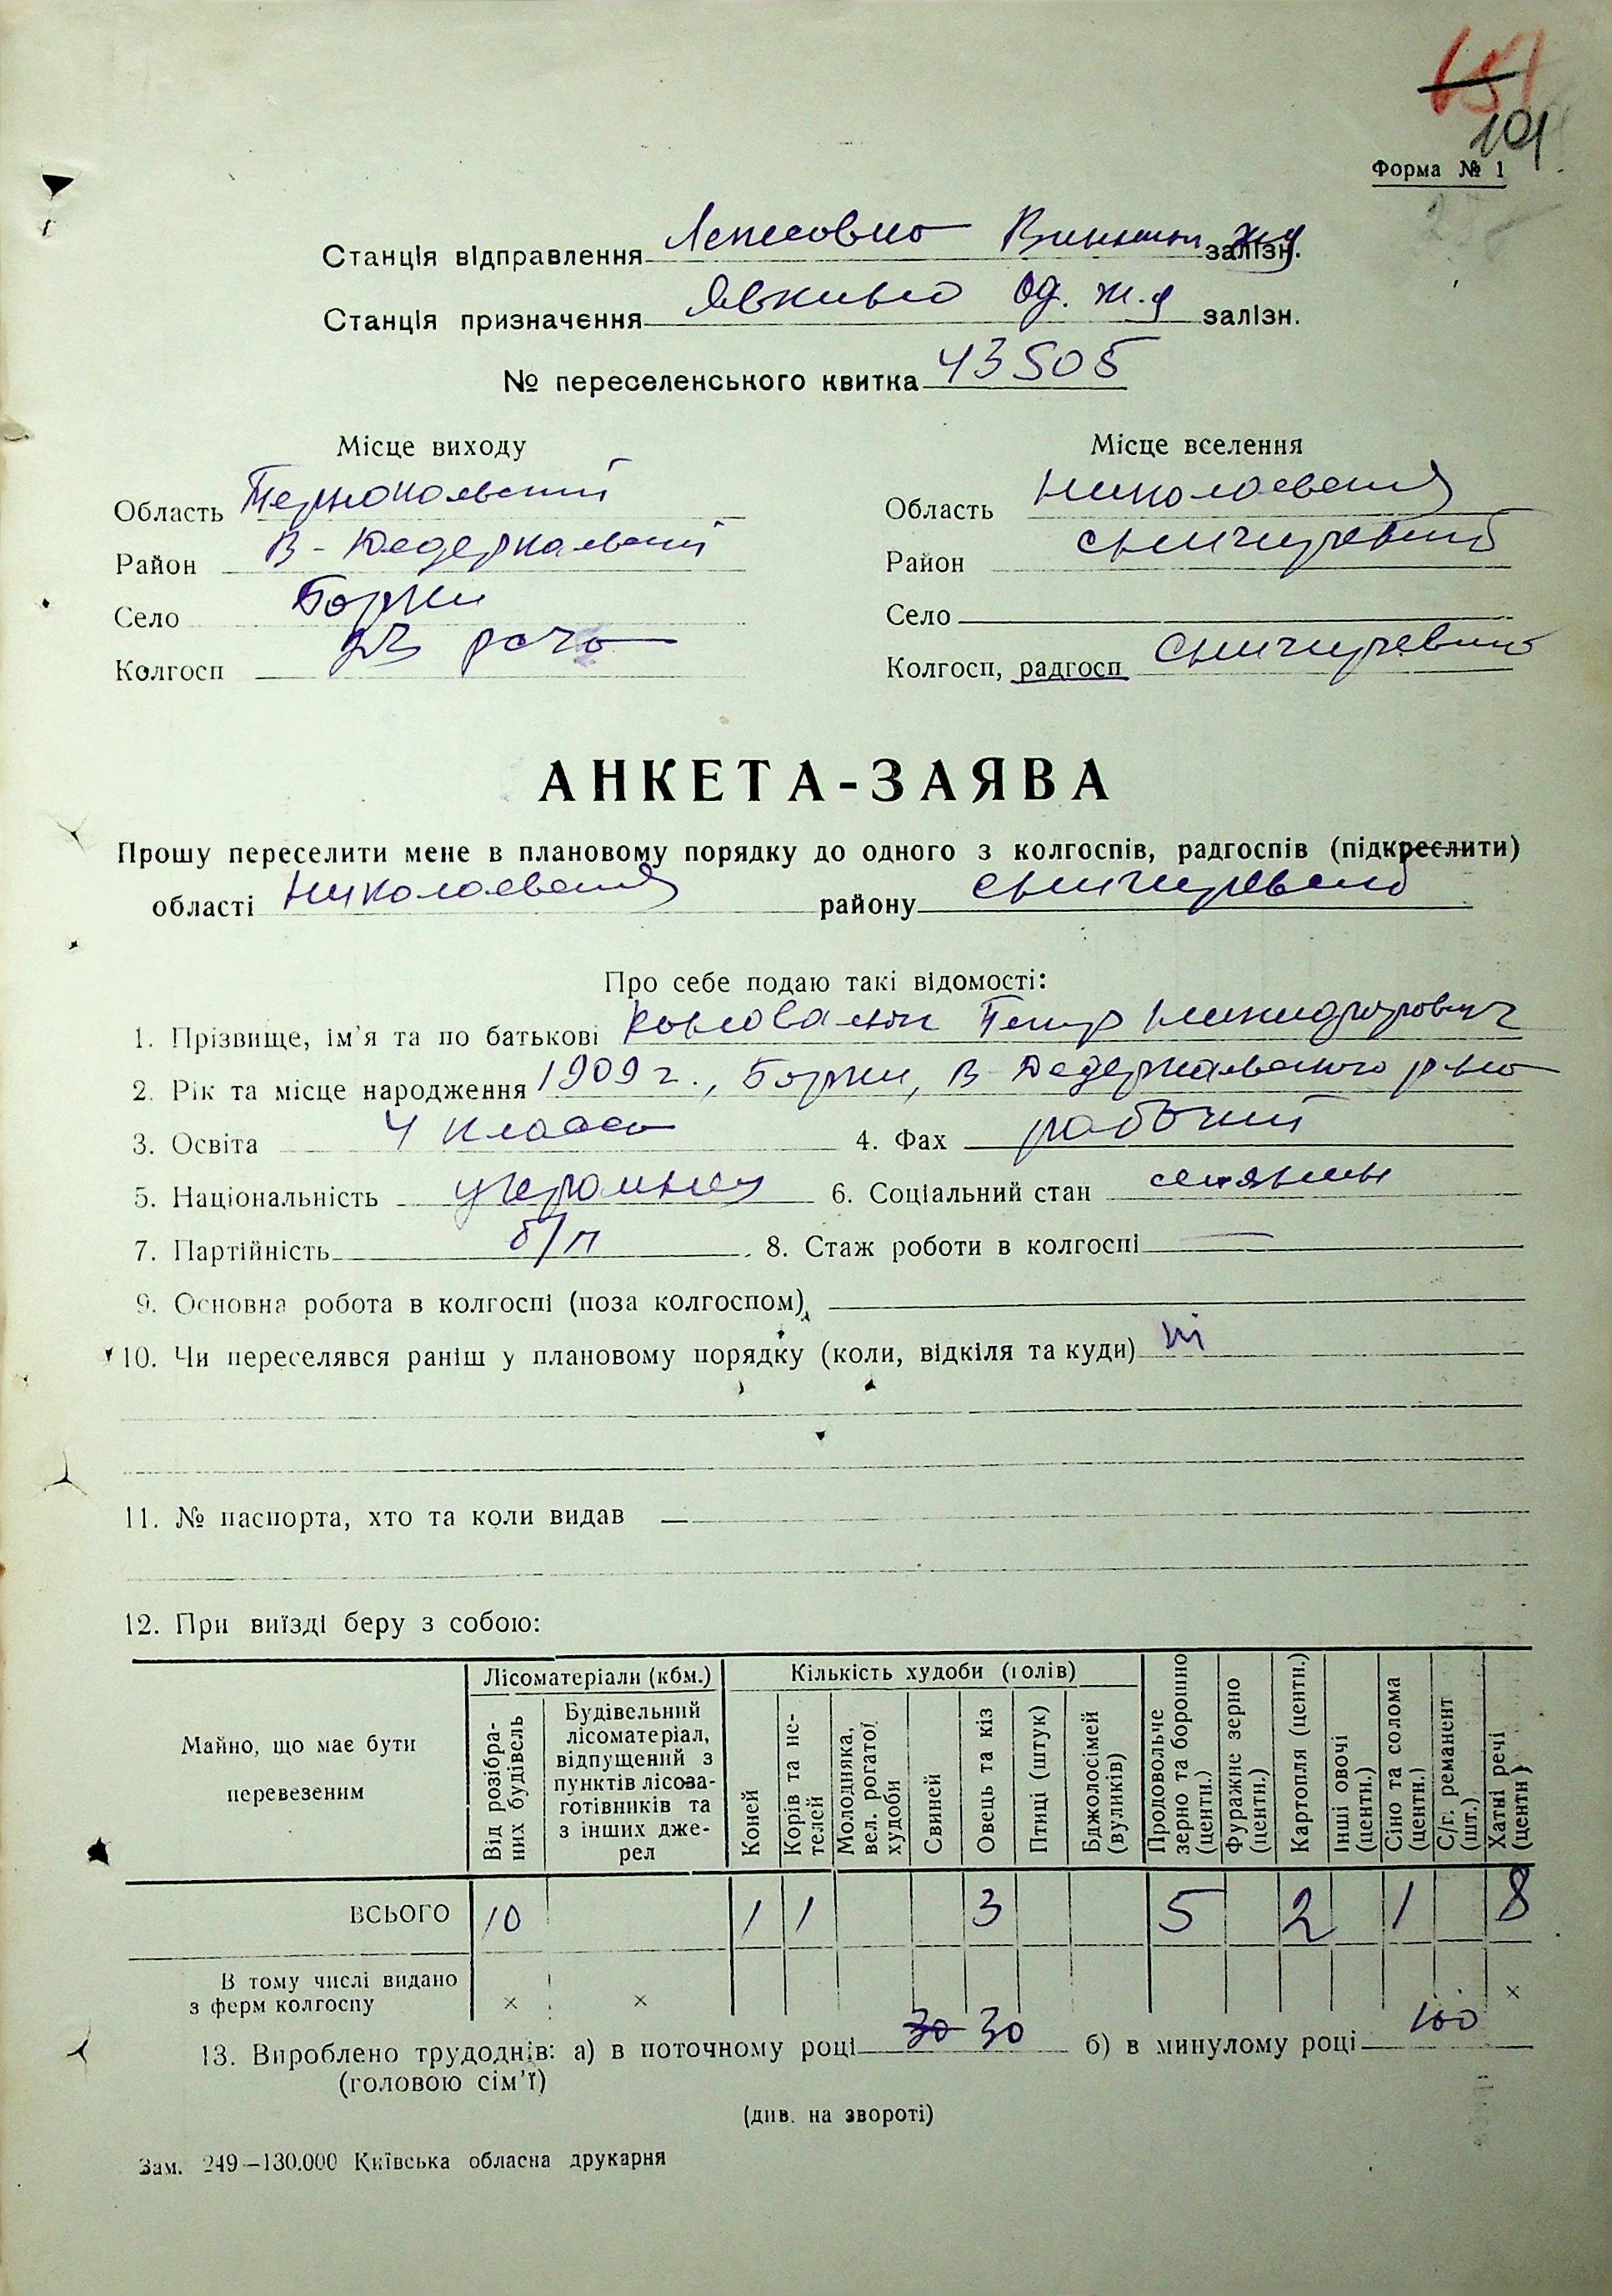 651
101
Форма № 1
Станція відправлення Винниц. ж.д залізн.
Станція призначення Явкино Од. ж.д залізн.
№ переселенського квитка 43505
Місце виходу
Місце вселення
Область Тернопольский
Область Николаевская
Район В-Дедеркальский
Район Снигиревский
Село
Село
Колгосп
Колгосп, радгосп
АНКЕТА-ЗАЯВА
Прошу переселити мене в плановому порядку до одного з колгоспів, радгоспів (підкреслити)
області Николаевская району Снигиревский
Про себе подаю такі відомості:
1. Прізвище, ім'я та по батькові Коновалюк Петр
2. Рік та місце народження 1909 г., В-Дедеркальского р-на
3. Освіта 4 класса 4. Фах рабочий
5. Національність украинец 6. Соціальний стан
7. Партійність б/п 8. Стаж роботи в колгоспі —
9. Основна робота в колгоспі (поза колгоспом)
10. Чи переселявся раніш у плановому порядку (коли, відкіля та куди) ні
11. № паспорта, хто та коли видав —
12. При виїзді беру з собою:
Майно, що має бути перевезеним
Лісоматеріали (кбм.)
Кількість худоби (голів)
Від розібраних будівель
Будівельний лісоматеріал, відпущений з пунктів лісозаготівників та з інших джерел
Коней
Корів та нетелей
Молодняка, вел. рогатої худоби
Свиней
Овець та кіз
Птиці (штук)
Бджолосімей (вуликів)
Продовольче зерно та борошно (центн.)
Фуражне зерно (центн.)
Картопля (центн.)
Інші овочі (центн.)
Сіно та солома (центн.)
С/г. реманент (шт.)
Хатні речі (центн.)
ВСЬОГО 10 1 1 3 5 2 1 8
В тому числі видано з ферм колгоспу × × ×
13. Вироблено трудоднів: а) в поточному році 30 30 б) в минулому році 100
(головою сім'ї)
(див. на звороті)
Зам. 249—130.000 Київська обласна друкарня